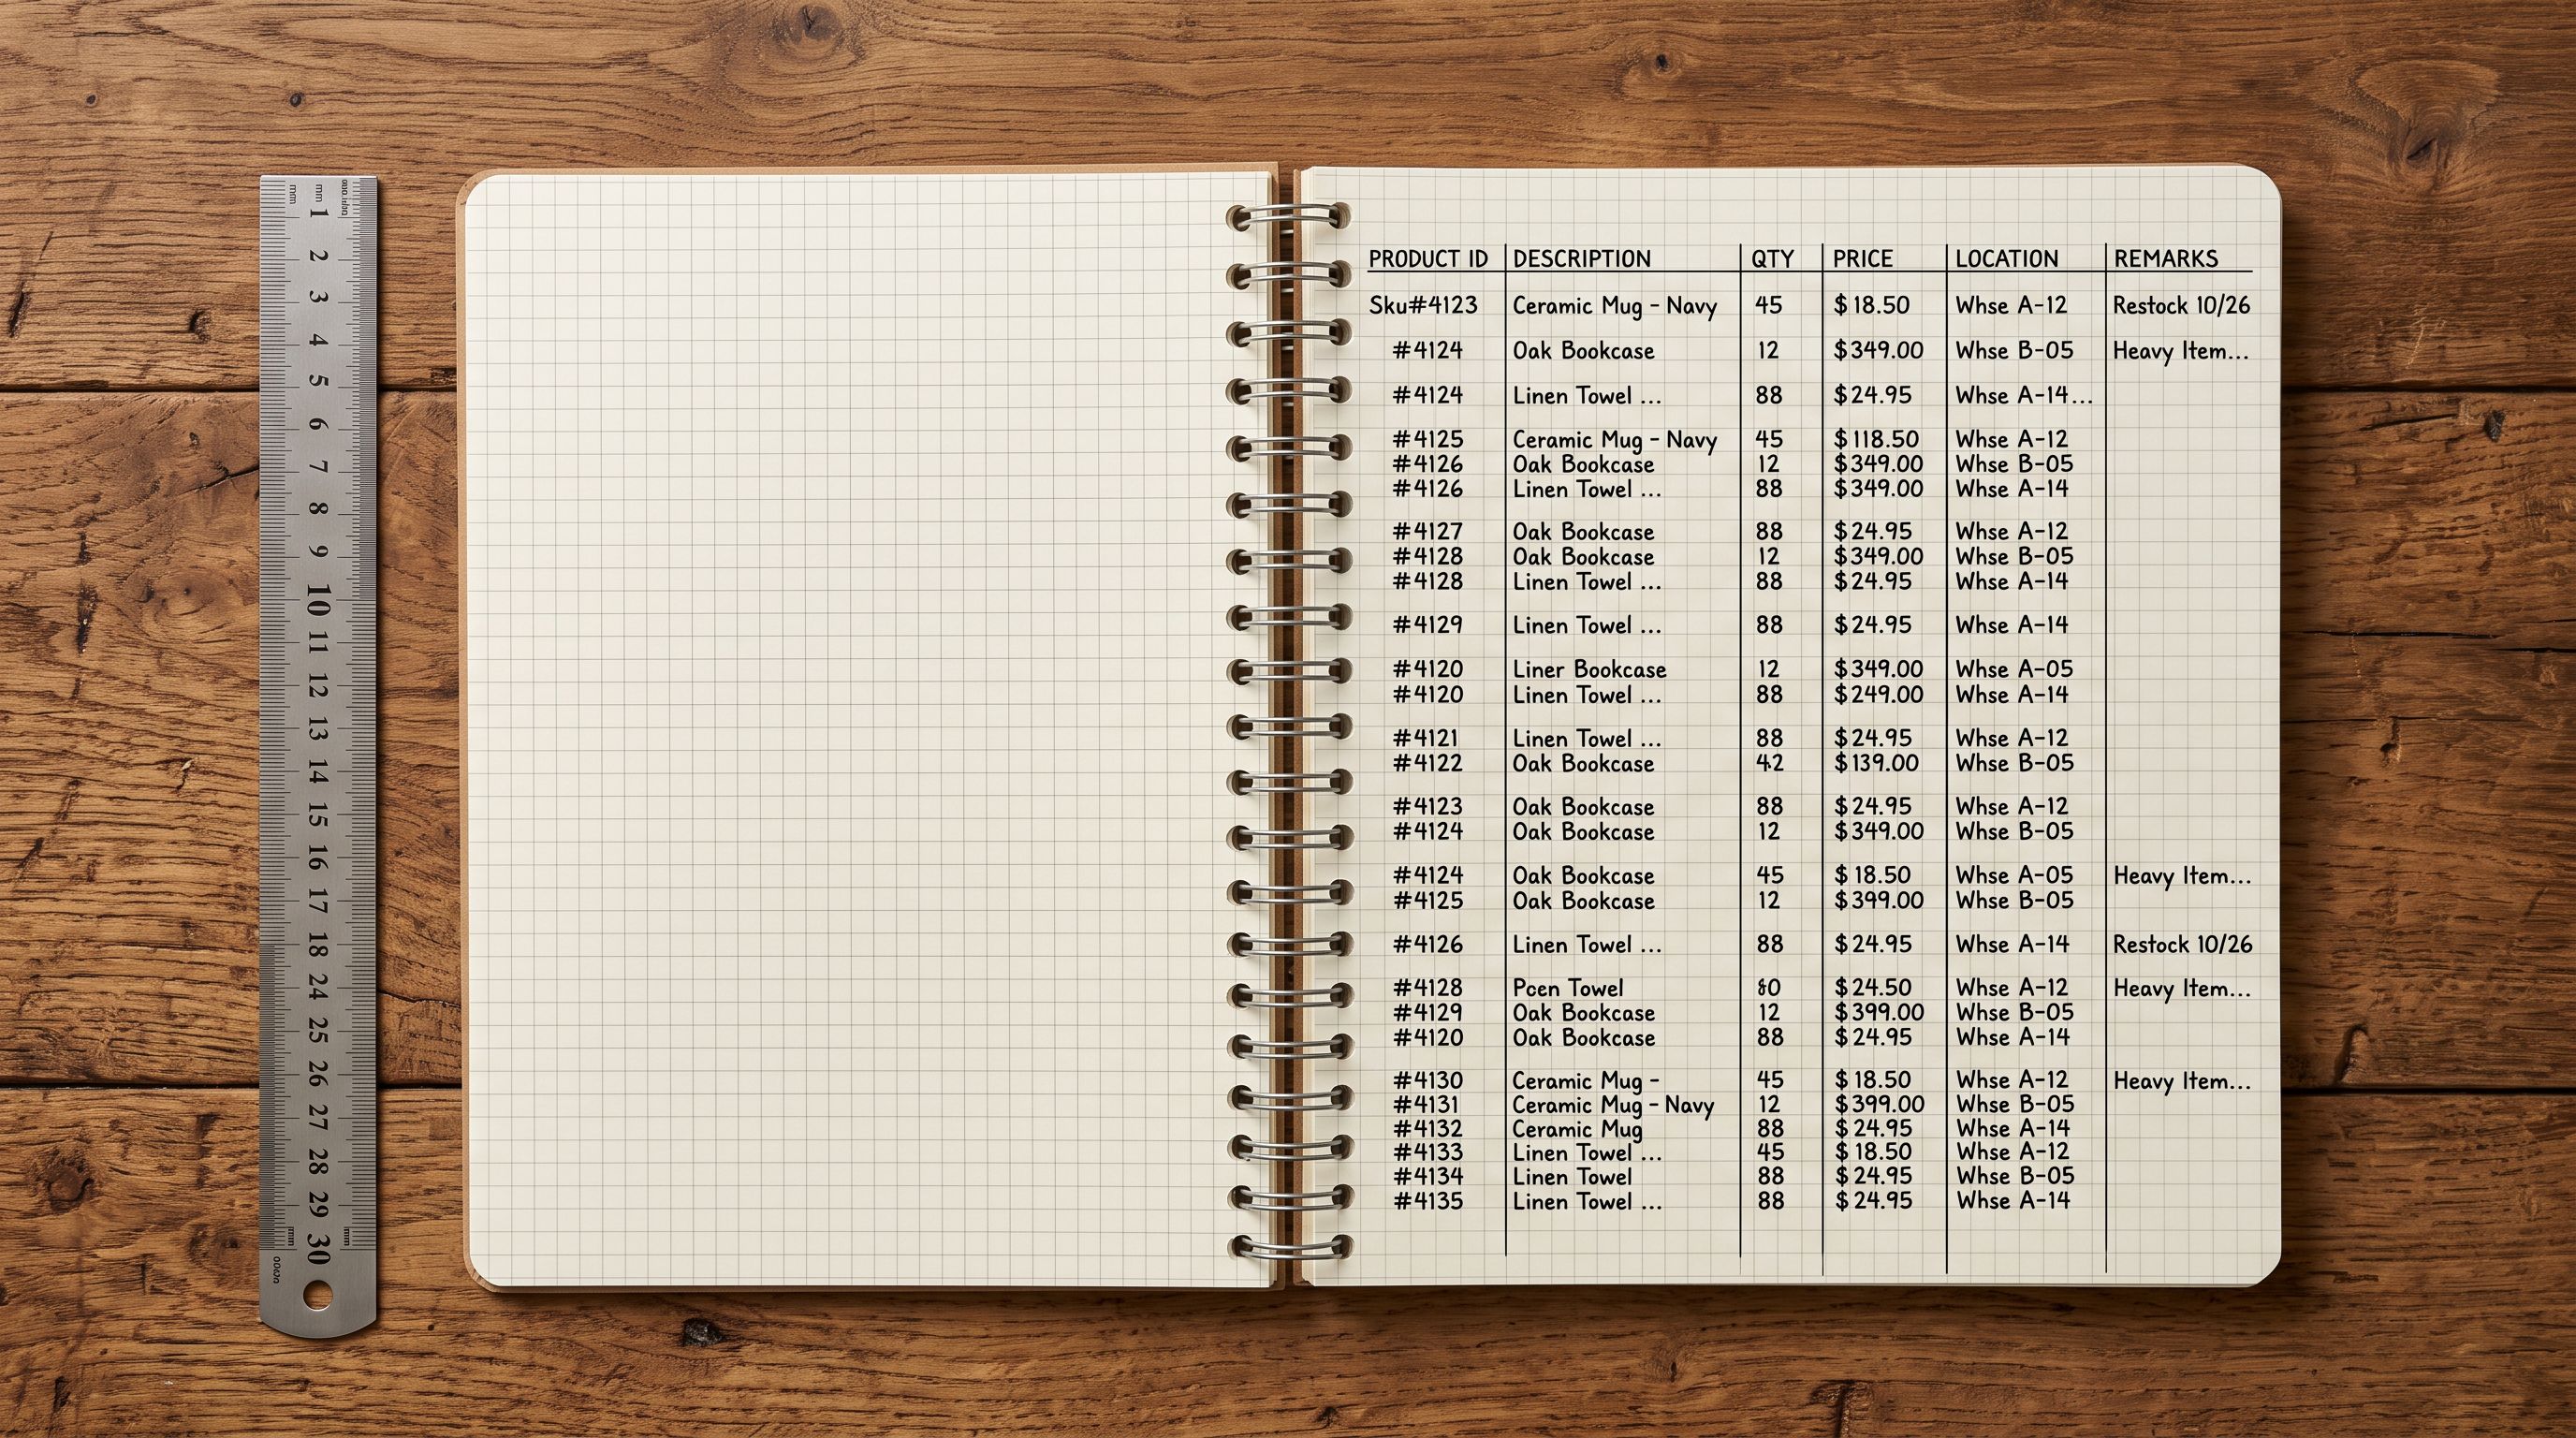 mm mm
1
2
3
4
5
6
7
8
9
10
11
12
13
14
15
16
17
18
24
25
26
27
28
29
mm mm
30
PRODUCT ID DESCRIPTION QTY PRICE LOCATION REMARKS
Sku#4123 Ceramic Mug - Navy 45 $18.50 Whse A-12 Restock 10/26
#4124 Oak Bookcase 12 $349.00 Whse B-05 Heavy Item...
#4124 Linen Towel ... 88 $24.95 Whse A-14...
#4125 Ceramic Mug - Navy 45 $118.50 Whse A-12
#4126 Oak Bookcase 12 $349.00 Whse B-05
#4126 Linen Towel ... 88 $349.00 Whse A-14
#4127 Oak Bookcase 88 $24.95 Whse A-12
#4128 Oak Bookcase 12 $349.00 Whse B-05
#4128 Linen Towel ... 88 $24.95 Whse A-14
#4129 Linen Towel ... 88 $24.95 Whse A-14
#4120 Liner Bookcase 12 $349.00 Whse A-05
#4120 Linen Towel ... 88 $249.00 Whse A-14
#4121 Linen Towel ... 88 $24.95 Whse A-12
#4122 Oak Bookcase 42 $139.00 Whse B-05
#4123 Oak Bookcase 88 $24.95 Whse A-12
#4124 Oak Bookcase 12 $349.00 Whse B-05
#4124 Oak Bookcase 45 $18.50 Whse A-05 Heavy Item...
#4125 Oak Bookcase 12 $399.00 Whse B-05
#4126 Linen Towel ... 88 $24.95 Whse A-14 Restock 10/26
#4128 Pcen Towel $24.50 Whse A-12 Heavy Item...
#4129 Oak Bookcase 12 $399.00 Whse B-05
#4120 Oak Bookcase 88 $24.95 Whse A-14
#4130 Ceramic Mug - 45 $18.50 Whse A-12 Heavy Item...
#4131 Ceramic Mug - Navy 12 $399.00 Whse B-05
#4132 Ceramic Mug 88 $24.95 Whse A-14
#4133 Linen Towel ... 45 $18.50 Whse A-12
#4134 Linen Towel 88 $24.95 Whse B-05
#4135 Linen Towel ... 88 $24.95 Whse A-14